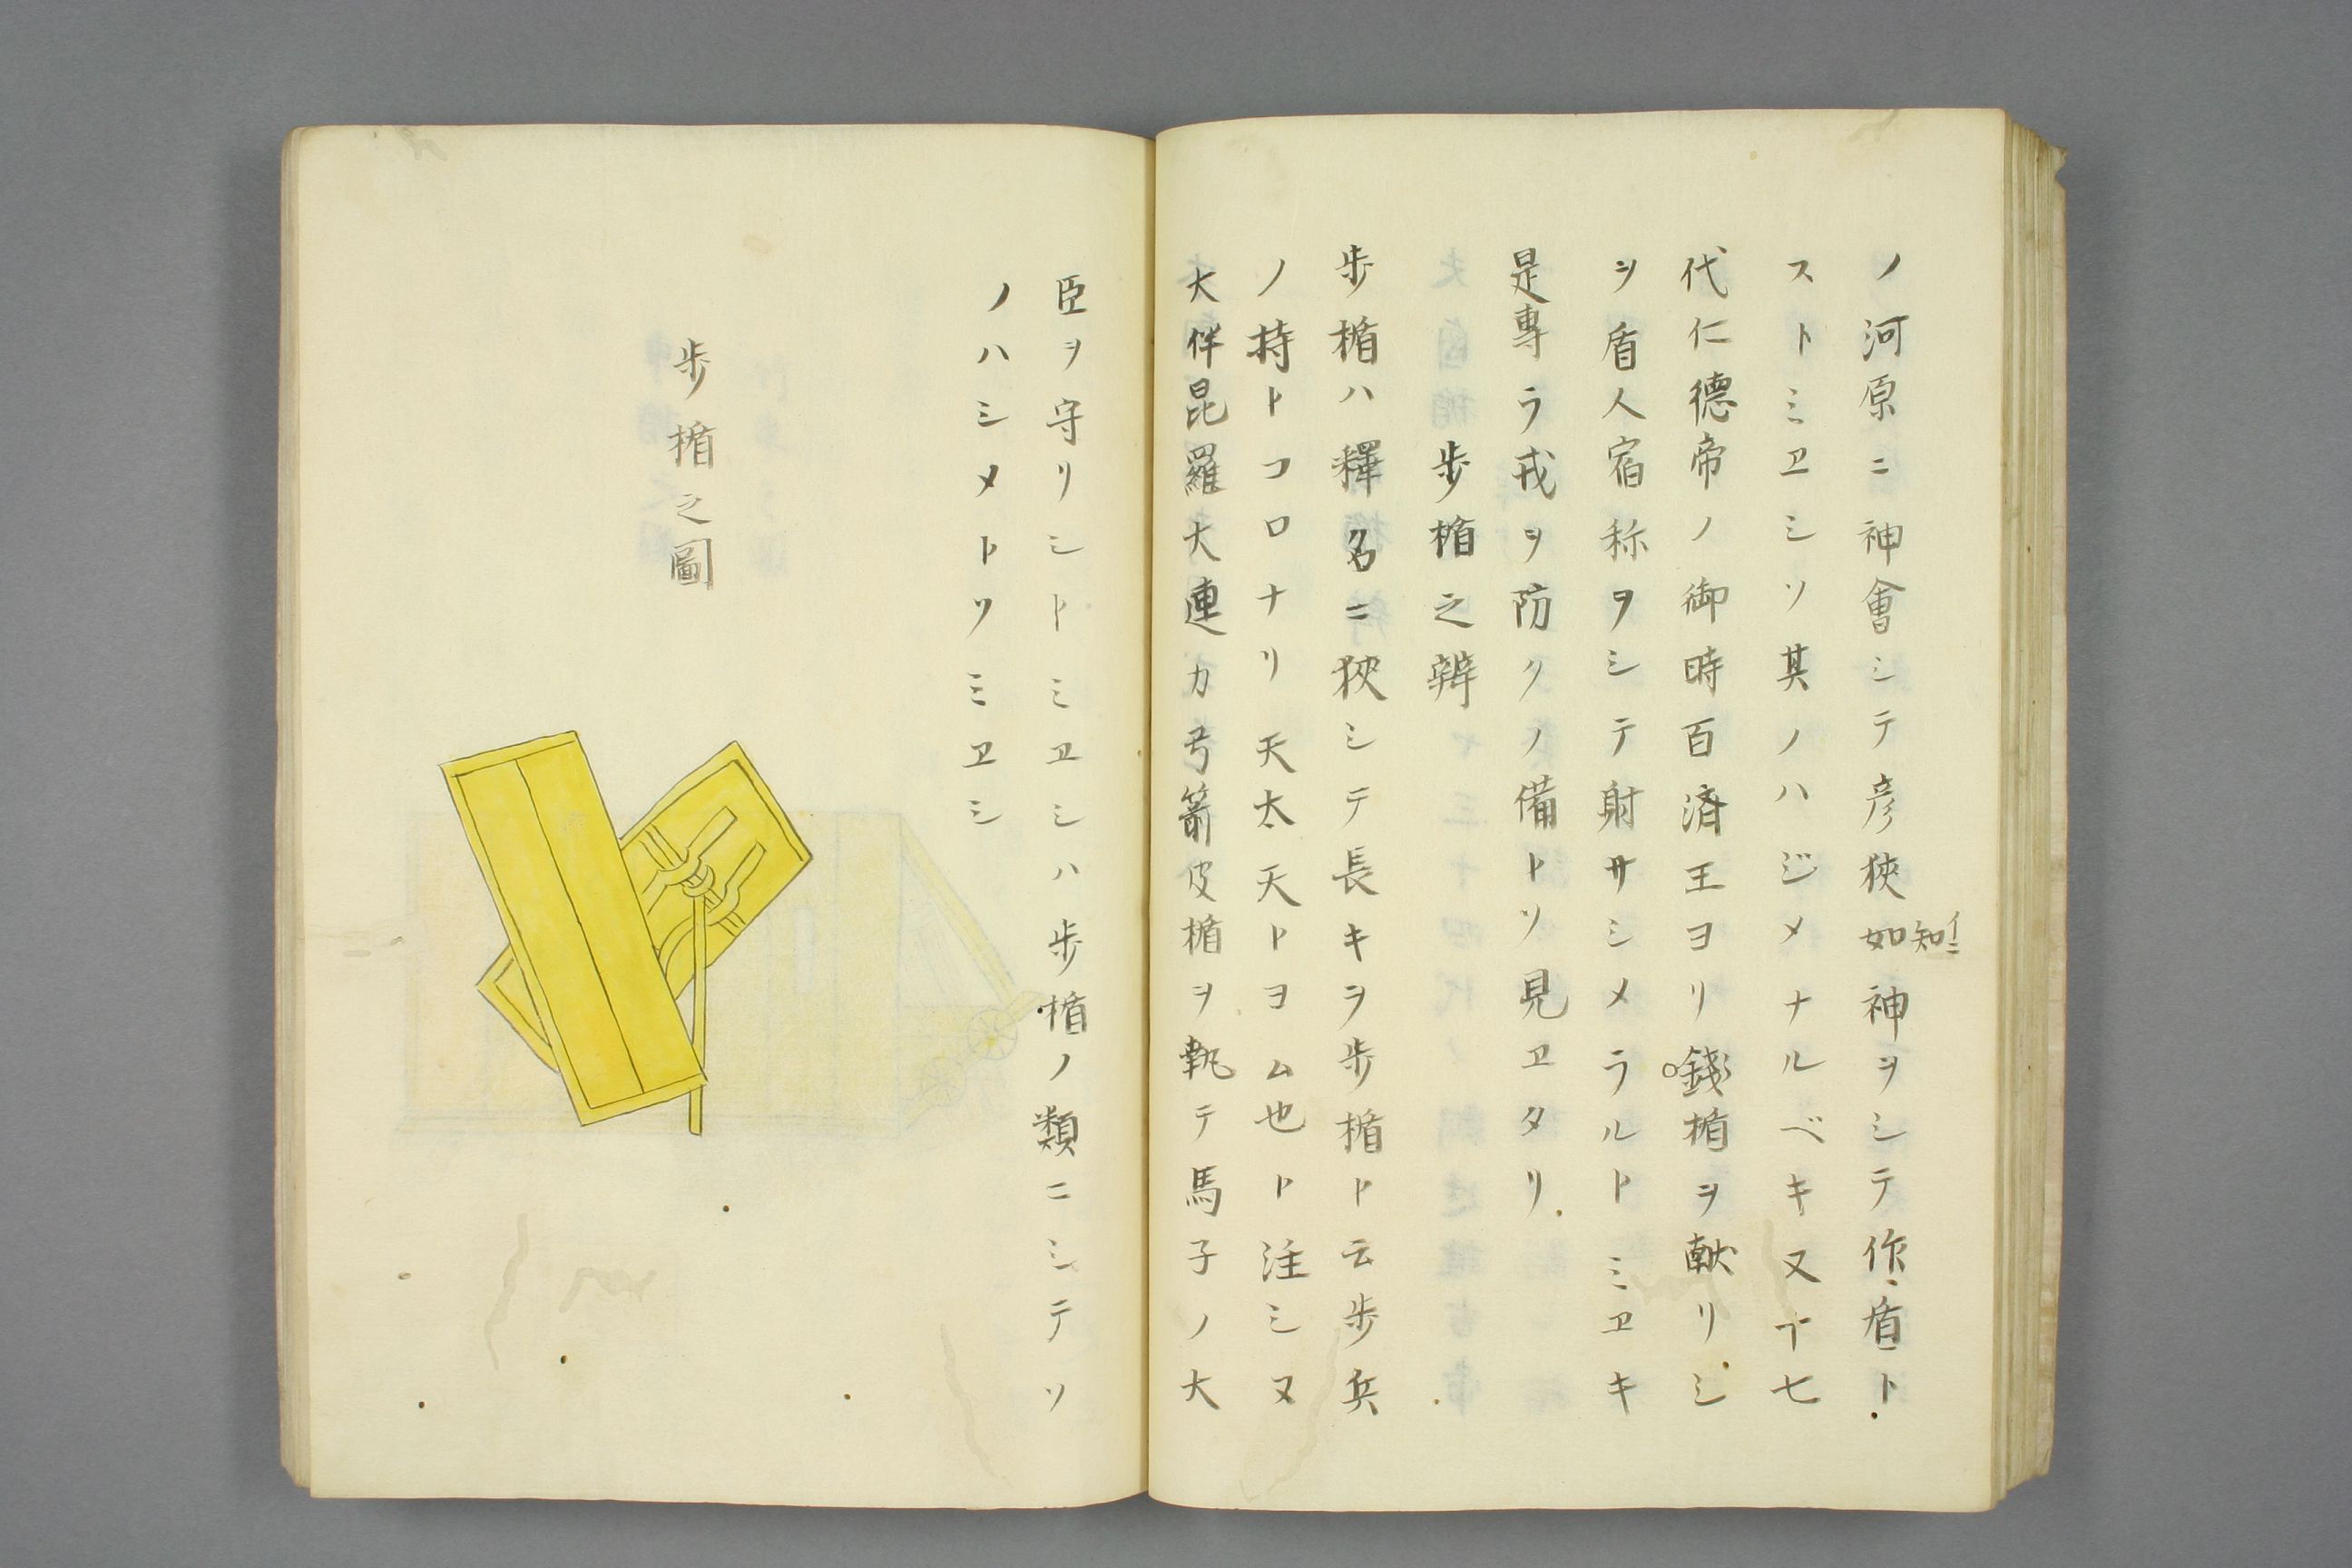 ノ河原ニ神會シテ彦狹如神ヲシテ作盾ト
知イニ
ストミヱシソ其ノハジメナルベキ又十七
代仁德帝ノ御時百済王ヨリ錢楯ヲ献リシ
ヲ盾人宿称ヲシテ射サシメラルトミヱキ
是專ラ戎ヲ防クノ備トソ見ヱタリ
歩楯之辨
歩楯ハ釋名ニ狹シテ長キヲ歩楯ト云歩兵
ノ持トコロナリ天太天トヨム也ト注シヌ
大伴昆羅大連カ弓箭皮楯ヲ執テ馬子ノ大
臣ヲ守リシトミヱシハ歩楯ノ類ニシテソ
ノハシメトソミヱシ
歩楯之圖